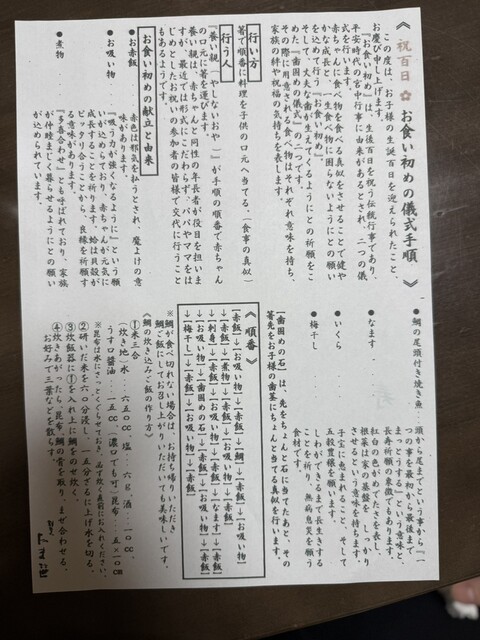 《 祝百日 お食い初めの儀式手順 》
この度は、お子様の生誕百日を迎えられたこと、
お慶び申し上げます。
「お食い初め」は、生後百日を祝う伝統行事であり、
平安時代の宮中行事に由来があるとされ、二つの儀
式を行います。
赤ちゃんに食べ物を食べる真似をさせることで健や
かな成長と、一生食べ物に困らないようにとの願い
を込めて行う『お食い初め』。
そして、丈夫な歯が生えてくるようにとの祈願をこ
めた『歯固めの儀式』の二つです。
その際に用意される食べ物はそれぞれ意味を持ち、
家族の絆や祝福の気持ちを表します。
行い方
箸で順番に料理を子供の口元へ当てる。（食事の真似）
行う人
『養い親』(やしないおや…)が手順の順番で赤ちゃん
の口元に箸を運びます。
養い親は、赤ちゃんと同性の年長者が役目を担いま
すが、最近では形式にこだわらず、パパやママをは
じめとしたお祝いの参加者の皆様で交代に行うこと
もあるようです。
お食い初めの献立と由来
●お赤飯
赤色は邪気を払うとされ、魔よけの意
味があります。
●お吸い物
『吸う力が強くなるように』という願
いが込めてあり、赤ちゃんが元気に
成長することを祈ります。蛤は貝殻が
ピッタリ合うことから、良縁を祈願す
る意味があります。
●煮物
『多喜合わせ』とも呼ばれており、家族
が仲睦まじく暮らせるようにとの願い
が込められています。
●鯛の尾頭付き焼き魚
頭から尾までという事から『一
つの事を最初から最後まで
まっとうする』という意味と、
長寿祈願の象徴でもあります。
●なます
紅白の色がめでたさを表し、
根菜は家の基盤をしっかり
させるという意味を持ちます。
●いくら
子宝に恵まれること、そして
五穀豊穣を願います。
●梅干し
しわができるまで長生きする
ことを祈り、無病息災を願う
食材です。
【歯固めの石】は、先をちょんと石に当てたあと、その
箸先をお子様の歯茎にちょんと当てる真似を行います。
《 順番 》
【赤飯】→【お吸い物】→【赤飯】→【鯛】→【赤飯】
→【お吸い物】→【赤飯】→【煮物】→【赤飯】→【お吸い物】
→【赤飯】→【刺身】→【赤飯】→【お吸い物】→【赤飯】
→【お吸い物】→【赤飯】→【なます】→【赤飯】
→【お吸い物】→【歯固めの石】→【お吸い物】→【赤飯】
→【梅干し】→【赤飯】→【お吸い物】→【赤飯】
※鯛が食べ切れない場合は、お持ち帰りいただき
鯛ご飯にしてお召し上がりいただいても美味しいです。
《鯛の炊き込みご飯の作り方》
①米三合
（炊き地）水…六五〇㏄、塩…六ｇ、酒…二〇㏄、
うすロ醤油…二〇㏄、濃口でも可、昆布…五×一〇㎝
※昆布は水にさっとくぐらせておき、出汁を炊く直前にお入れください。
②研いだ米を六〇分浸し、一五分ざるに上げ水を切る。
③炊飯器に①を入れ上に鯛をのせ炊く。
④炊きあがったら、昆布、鯛の骨を取り、まぜ合わせる。
お好みで三葉などを散らす。